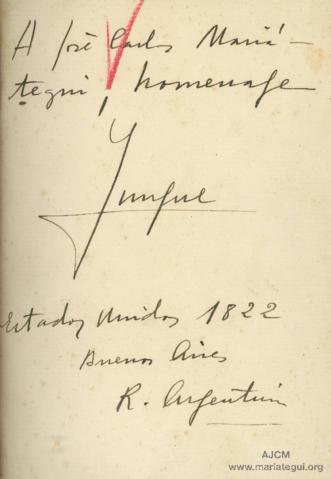 A José Carlos Mariá-
tegui, homenage
Yunque
Estados Unidos 1822
Buenos Aires
R. Argentina
AJCM
www.mariategui.org